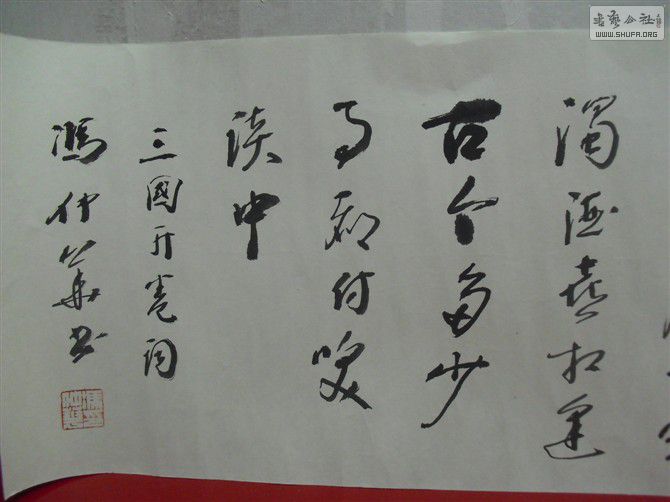 濁酒喜相逢
古今多少
事都付咲
談中
三國开卷詞
馮仲華书
書藝公社
WWW.SHUFA.ORG